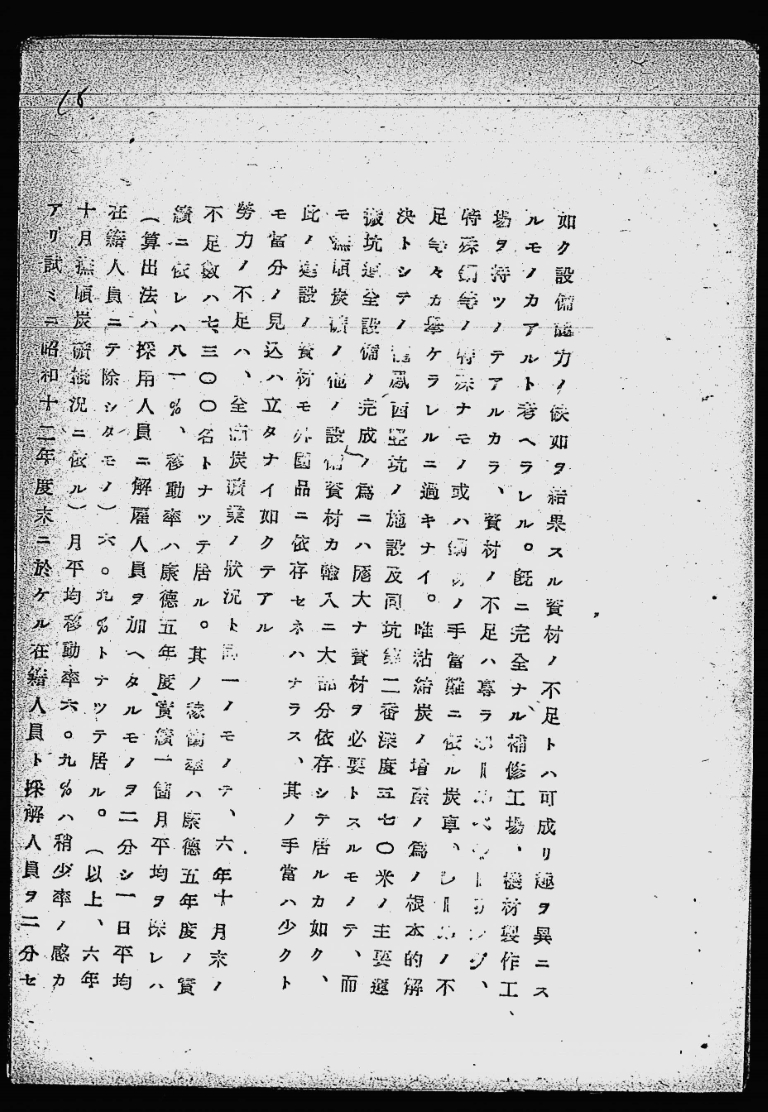 18
如ク設備能力ノ缺如ヲ結果スル資材ノ不足トハ可成リ趣ヲ異ニス
ルモノカアルト考ヘラレル。既ニ完全ナル補修工場、機材製作工
場ヲ持ツノテアルカラ、資材ノ不足ハ專ラボールベヤーリング、
特殊鋼等ノ特殊ナモノ或ハ鋼材ノ手當難ニ依ル炭車、レールノ不
足等々カ擧ケラレルニ過キナイ。唯粘結炭ノ增產ノ爲ノ根本的解
決トシテノ龍鳳西竪坑ノ施設及同坑第二番深度五七〇米ノ主要運
搬坑道全設備ノ完成ノ爲ニハ厖大ナ資材ヲ必要トスルモノテ、而
モ撫順炭礦ノ他ノ設備資材カ輸入ニ大部分依存シテ居ルカ如ク、
此ノ建設ノ資材モ外國品ニ依存セネハナラス、其ノ手當ハ少クト
モ當分ノ見込ハ立タナイ如クテアル
勞力ノ不足ハ、全滿炭礦業ノ狀況ト同一ノモノテ、六年十月末ノ
不足數ハ七、三〇〇名トナツテ居ル。其ノ稼働率ハ康德五年度ノ實
績ニ依レハ八一%、移動率ハ康德五年度實績一箇月平均ヲ採レハ
(算出法ハ採用人員ニ解雇人員ヲ加ヘタルモノヲ二分シ一日平均
在籍人員ニテ除シタモノ)六。九%トナツテ居ル。(以上、六年
十月撫順炭礦槪況ニ依ル)月平均移動率六。九%ハ稍少率ノ感カ
アリ試ミニ昭和十二年度末ニ於ケル在籍人員ト採解人員ヲ二分セ